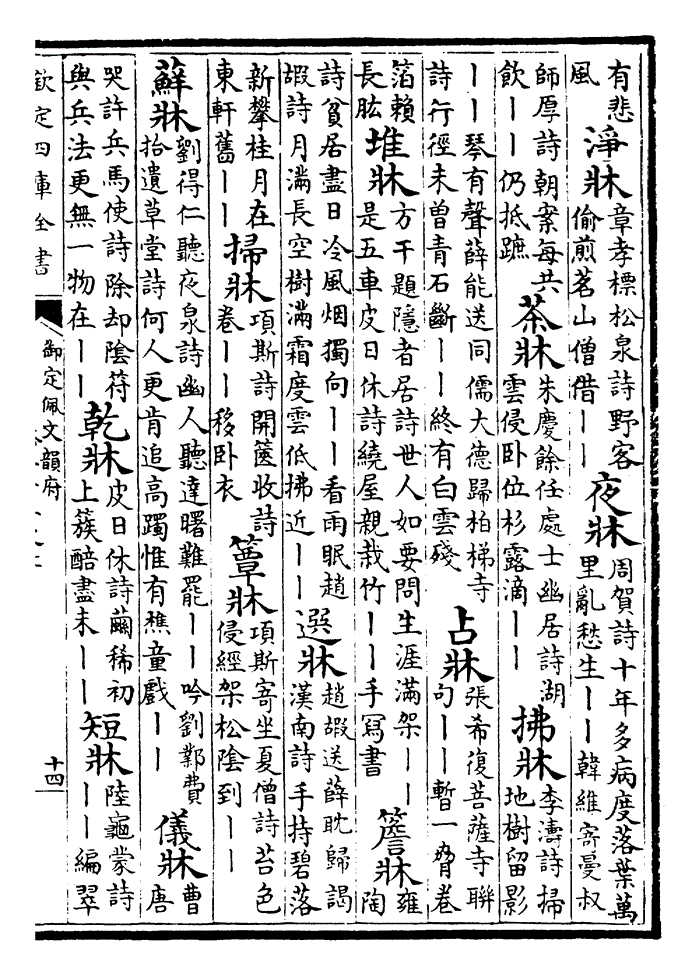 有悲
風
淨牀
章孝標松泉詩野客
偷煎茗山僧借丨丨
夜牀
周賀詩十年多病度落葉萬
里亂愁生丨丨韓維寄曼叔
師厚詩朝案每共
飲丨丨仍抵蹠
茶牀
朱慶餘任處士幽居詩湖
雲侵卧位杉露滴丨丨
拂牀
李濤詩掃
地樹留影
丨丨琴有聲薛能送同儒大德歸柏梯寺
詩行徑未曾青石斷丨丨終有白雲殘
占牀
張希復菩薩寺聯
句丨丨暫一脅卷
箔賴
長肱
堆牀
方干題隱者居詩世人如要問生涯滿架丨丨
是五車皮日休詩繞屋親栽竹丨丨手寫書
簷牀
雍
陶
詩貧居盡日冷風烟獨向丨丨看雨眠趙
嘏詩月滿長空樹滿霜度雲低拂近丨丨
選牀
趙嘏送薛耽歸謁
漢南詩手持碧落
新攀桂月在
東軒舊丨丨
掃牀
項斯詩開篋收詩
卷丨丨移卧衣
簟牀
項斯寄坐夏僧詩苔色
侵經架松陰到丨丨
蘚牀
劉得仁聽夜泉詩幽人聽達曙難罷丨丨吟劉鄴費
拾遺草堂詩何人更肯追高躅惟有樵童戲丨丨
儀牀
曹
唐
哭許兵馬使詩除却陰符
與兵法更無一物在丨丨
乾牀
皮日休詩繭稀初
上簇醅盡未丨丨
短牀
陸龜蒙詩
丨丨編翠
欽定四庫全書
御定佩文韻府
十四